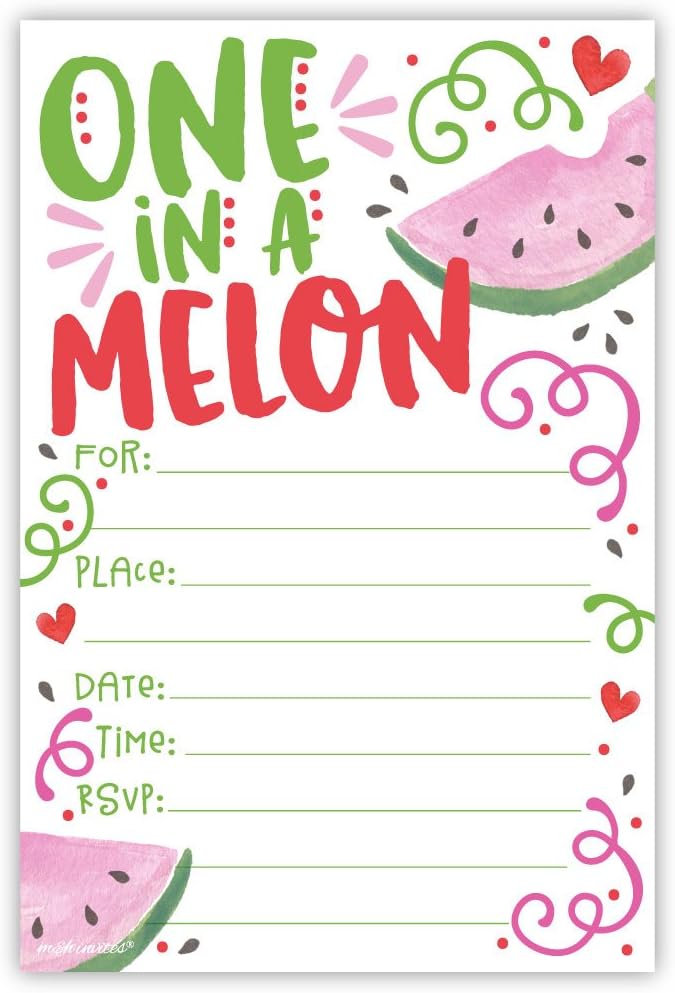 ONE
IN A
MELON
FOR:
PLACE:
DATE:
TIME:
RSVP:
m&h invites®